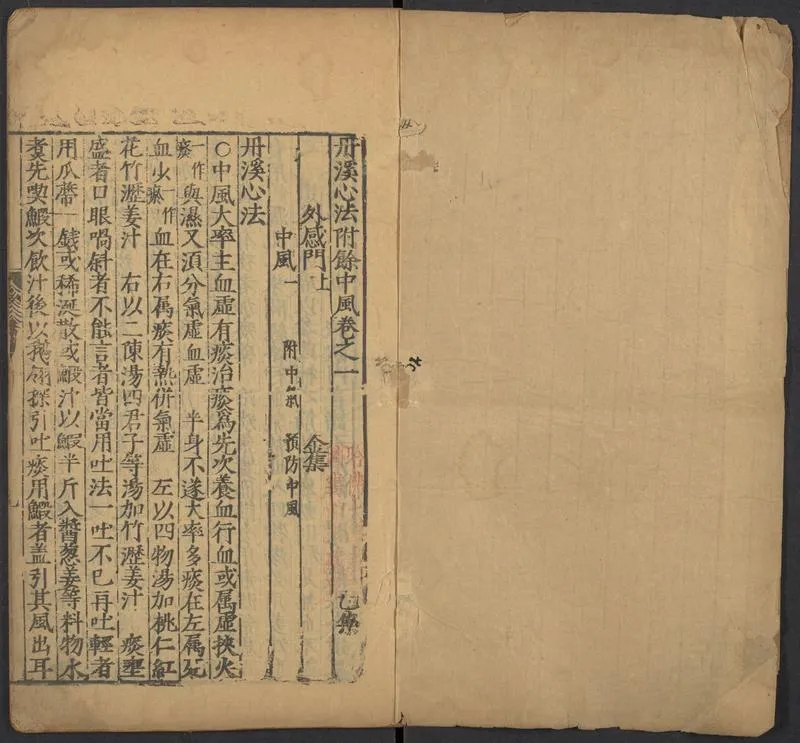 丹溪心法附餘中風卷之一
外感門上 金集
中風一 附中氣 預防中風
丹溪心法
○中風大率主血虛有痰治痰爲先次養血行血或属虛挾火
一作痰與濕又湏分氣虛血虛 半身不遂大率多痰在左属死
血少一作瘀血在右属痰有熱併氣虛 左以四物湯加桃仁紅
花竹瀝姜汁 右以二陳湯四君子等湯加竹瀝姜汁 痰壅
盛者口眼喎斜者不能言者皆當用吐法一吐不已再吐輕者
用瓜蔕一錢或稀涎散或鰕汁以鰕半斤入醬葱姜等料物水
煑先喫鰕次飲汁後以鵝翎探引吐痰用鰕者盖引其風出耳